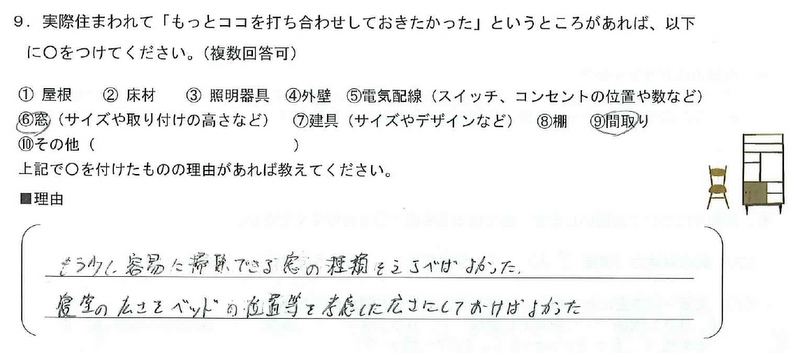 9．実際住まわれて「もっとココを打ち合わせしておきたかった」というところがあれば、以下
に○をつけてください。（複数回答可）
① 屋根　② 床材　③ 照明器具　④外壁　⑤電気配線（スイッチ、コンセントの位置や数など）
⑥窓（サイズや取り付けの高さなど）　⑦建具（サイズやデザインなど）　⑧棚　⑨間取り
⑩その他（　　　　　　　　　　）
上記で○を付けたものの理由があれば教えてください。
■理由
もう少し容易に掃除できる窓の種類をえらべばよかった.
寝室の広さをベッドの位置等を考慮した広さにしておけばよかった